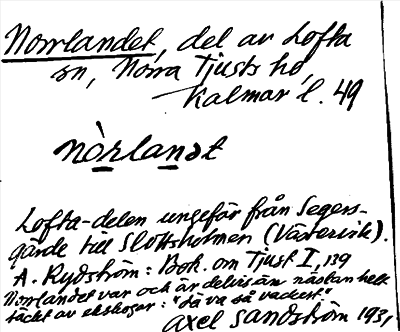 Norrlandet, del av Lofta
sn, Norra Tjusts hd,
Kalmar l. 49
nòrlanət
Lofta-delen ungefär från Segers-
gärde till Slottsholmen (Västervik).
A. Rydström: Bok. om Tjust I, 139
Norrlandet var och är delvis än nästan helt
täckt av ekskogar: "så va så vackert."
Axel Sandström 1931